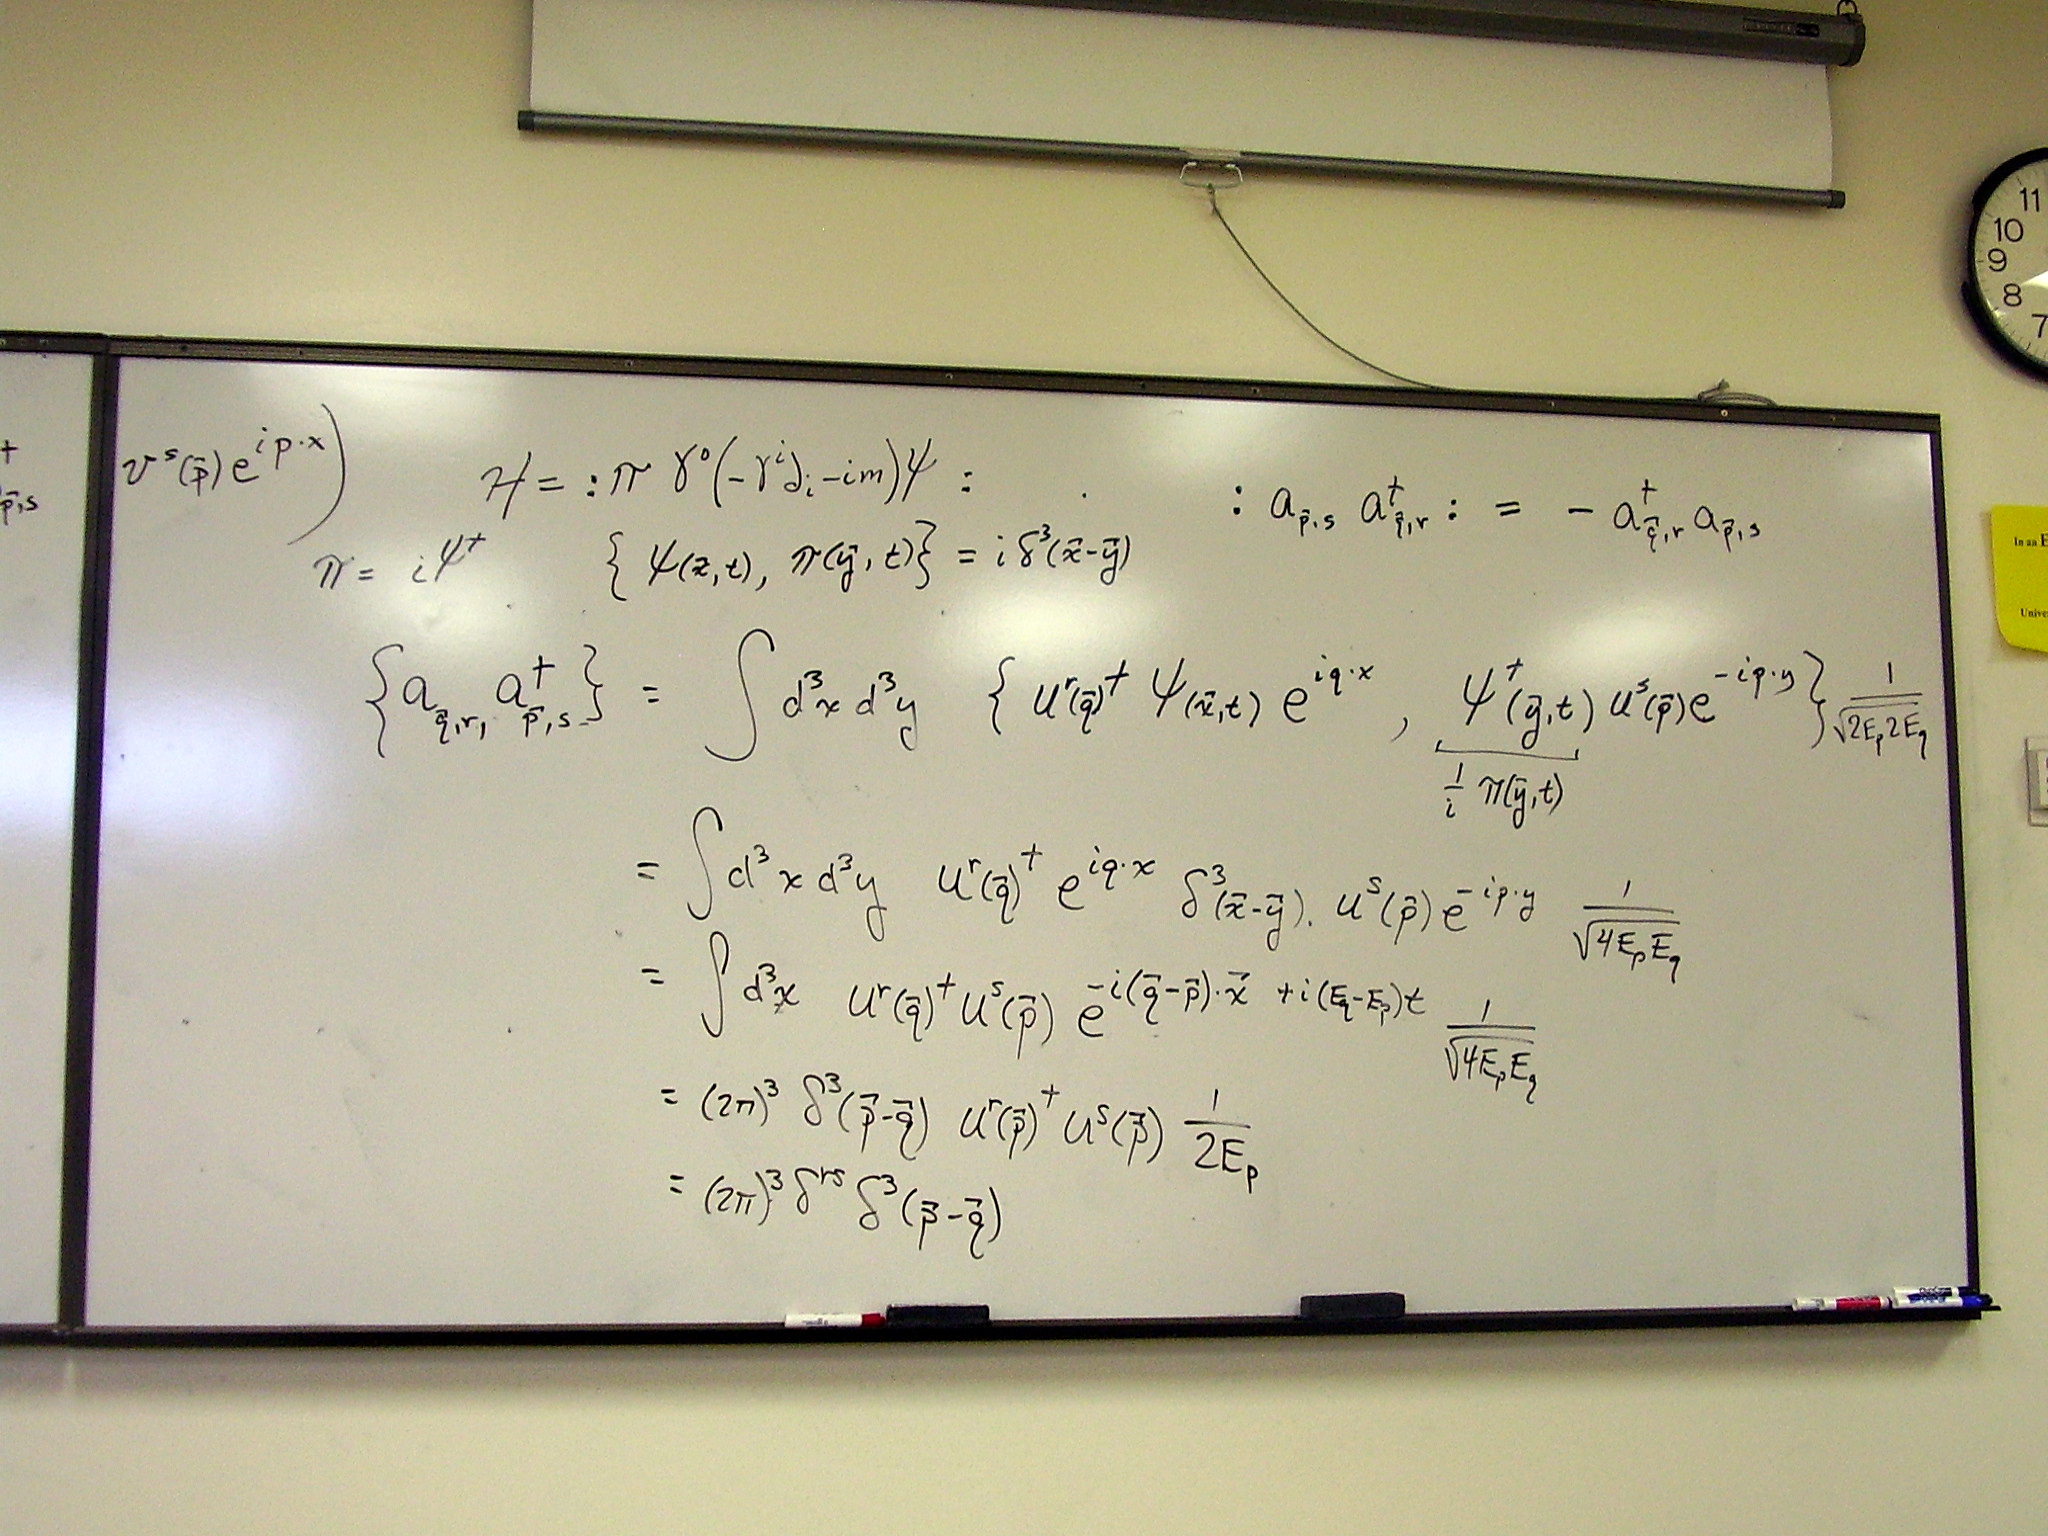 11
10
9
8
7
†
p⃗,s
v^s(p⃗) e^{ip·x} )
ℋ = : π γ⁰(-γ^i ∂_i - im)ψ :
: a_{p⃗,s} a†_{q⃗,r} : = - a†_{q⃗,r} a_{p⃗,s}
π = iψ†
{ ψ(x⃗,t), π(y⃗,t) } = i δ³(x⃗-y⃗)
{ a_{q⃗,r}, a†_{p⃗,s} } = ∫ d³x d³y { u^r(q⃗)† ψ(x⃗,t) e^{iq·x}, ψ†(y⃗,t) u^s(p⃗) e^{-ip·y} } 1/√(2E_p 2E_q)
1/i π(y⃗,t)
= ∫ d³x d³y u^r(q⃗)† e^{iq·x} δ³(x⃗-y⃗). u^s(p⃗) e^{-ip·y} 1/√(4E_p E_q)
= ∫ d³x u^r(q⃗)† u^s(p⃗) e^{-i(q⃗-p⃗)·x⃗ + i(E_q-E_p)t} 1/√(4E_p E_q)
= (2π)³ δ³(p⃗-q⃗) u^r(p⃗)† u^s(p⃗) 1/2E_p
= (2π)³ δ^{rs} δ³(p⃗-q⃗)
In an E
Unive